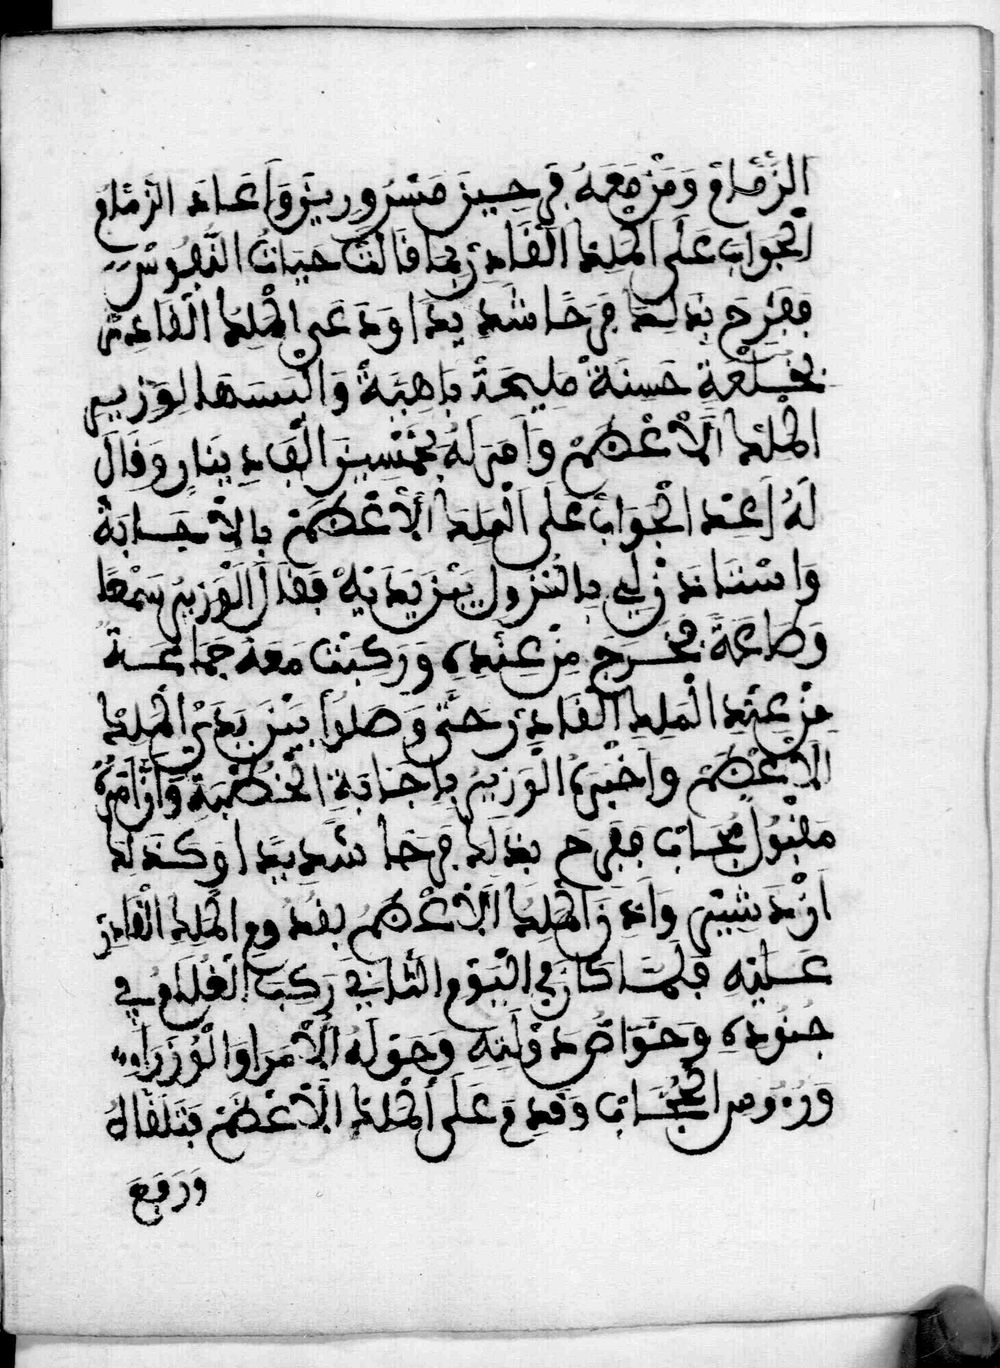 الزَّمَّام وَمَنْ مَعَهُ فَرِحِينَ مَسْرُورِينَ وَاَعَادَ الزمَّامُ
الْجَوَابَ عَلَى الْمَلِكِ الْقَادِرْ بِمَا قَالَتْ حَيَاتُ النُّفُوسْ
فَفَرِحَ بِذَلِكَ فَرَحًا شَدِيدًا وَدَعَى الْمَلِكُ الْقَادِرْ
بِخَلْعَةٍ حَسَنَةٍ مَلِيحَةً بَاهِيَةً وَالْبَسَهَا لِوَزِيرِ
الْمَلِكِ الْأَعْظَمْ وَاَمَرَ لَهُ بِخَمْسِينَ اَلْفِ دِينَارٍ وَقَالَ
لَهُ اَعِدْ الْجَوَابَ عَلَى الْمَلِكِ الْأَعْظَمْ بِالْاِجَابَةِ
وَاسْتَاذِنْ لِي بِالنُّزُولِ بَيْنَ يَدَيْهْ فَقَالَ الْوَزِيرُ سَمْعًا
وَطَاعَةً فَخَرَجَ مِنْ عِنْدِهِ وَرَكِبَتْ مَعَهُ جَمَاعَةٌ
مِنْ عِنْدِ الْمَلِكِ الْقَادِرْ حَتَّى وَصَلُوا بَيْنَ يَدَيْ الْمَلِكِ
الْأَعْظَمْ وَاَخْبَرَهُ الْوَزِيرُ بِاِجَابَةِ الْخُطْبَةِ وَأَنَّ اَمْرَهُ
مَقْبُولْ مُجَابْ فَفَرِحَ بِذَلِكَ فَرَحًا شَدِيدًا وَكَذَلِكَ
اَزْدَشِيرْ وَاَذِنَ الْمَلِكُ الْأَعْظَمُ بِقُدُومِ الْمَلِكِ الْقَادِرْ
عَلَيْهِ فَلَمَّا كَانَ فِي الْيَوْمِ الثَّانِي رَكِبَ الْغُلَامُ فِي
جُنُودِهِ وَخَوَاصِّ دَوْلَتِهِ وَحَوْلَهُ الْأُمَرَا وَالْوُزَرَاءِ
وَرُءُوسِ الْحُجَّابْ وَقَدِمَ عَلَى الْمَلِكِ الْأَعْظَمْ فَتَلَقَّاهُ
وَرَفَعَ